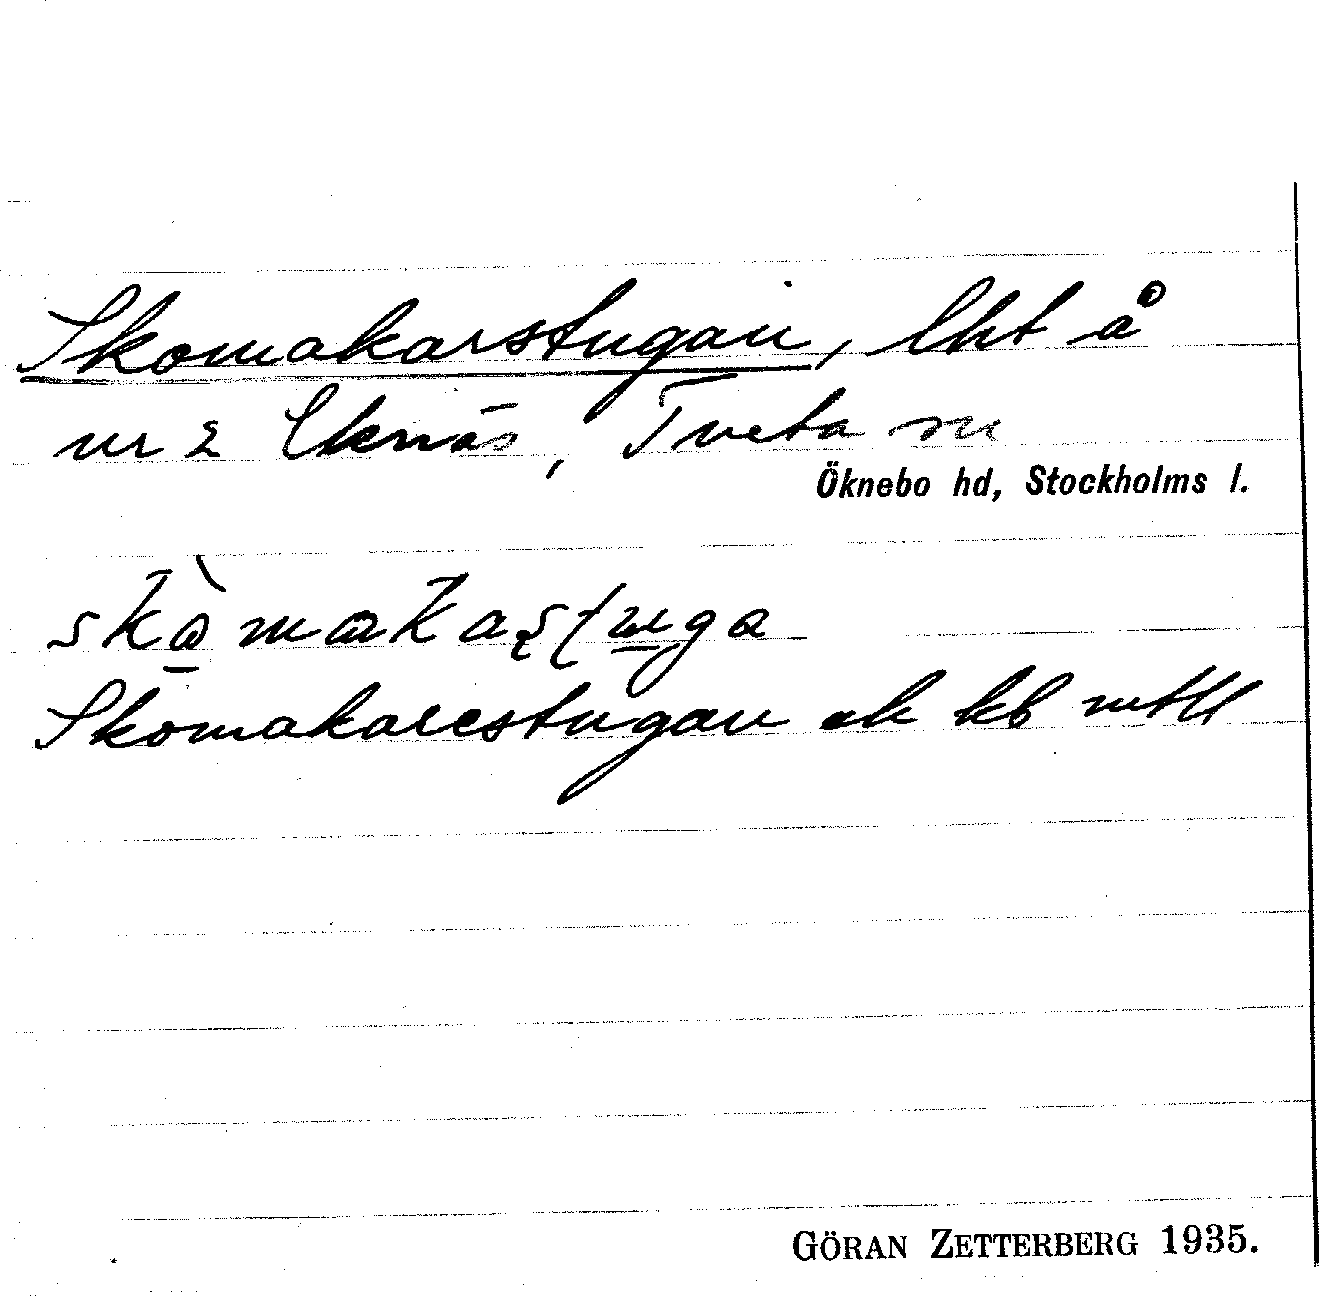 Skomakarstugan, lht å
nr 2 Eknäs, Tveta sn
Öknebo hd, Stockholms l.
Skomakarestugan ek kb mtll
GÖRAN ZETTERBERG 1935.